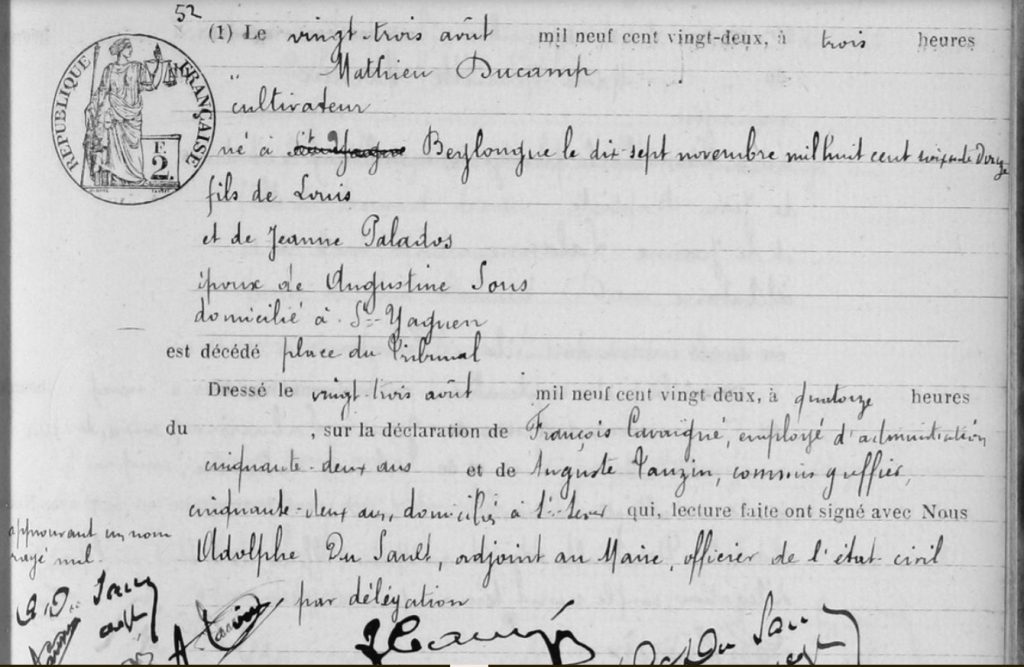 52
(1) Le vingt-trois août mil neuf cent vingt-deux, à trois heures
" Mathieu Ducamp
cultivateur
né à Beylongue le dix-sept novembre mil huit cent soixante douze
fils de Louis
et de Jeanne Palados
époux de Augustine Sous
domicilié à St-Yaguen
est décédé place du Tribunal
Dressé le vingt-trois août mil neuf cent vingt deux, à quatorze heures
du , sur la déclaration de François Cavaigné, employé d'administration
cinquante-deux ans et de Auguste Tauzin, commis greffier,
cinquante-deux ans, domiciliés à St-Sever qui, lecture faite ont signé avec Nous
Adolphe Du Sault, adjoint au Maire, officier de l'état civil
par délégation
approuvant un nom
rayé nul.
RÉPUBLIQUE FRANÇAISE
F.
2.
A Tauzin
Du Sau